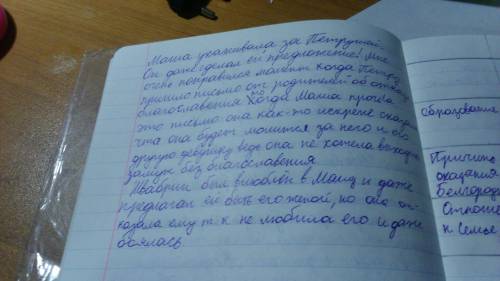 Маша ухаживала за Петрушей.
Он даже сделал ей предложение! Мне
очень понравился момент когда Петру
пришло письмо от родителей об отказе
благославения. Когда Маша прочла
это письмо она как-то искрене сказала
что она будет молится за него и его
другую девушку ведь она не хотела выходить
замуж без благославения
Швабрин был влюблён в Машу и даже
предлагал ей быть его женой, но она от-
казала ему т к не любила его и даже
боялась
образования
Причина
оказания
Белгород
Отноше
к семье